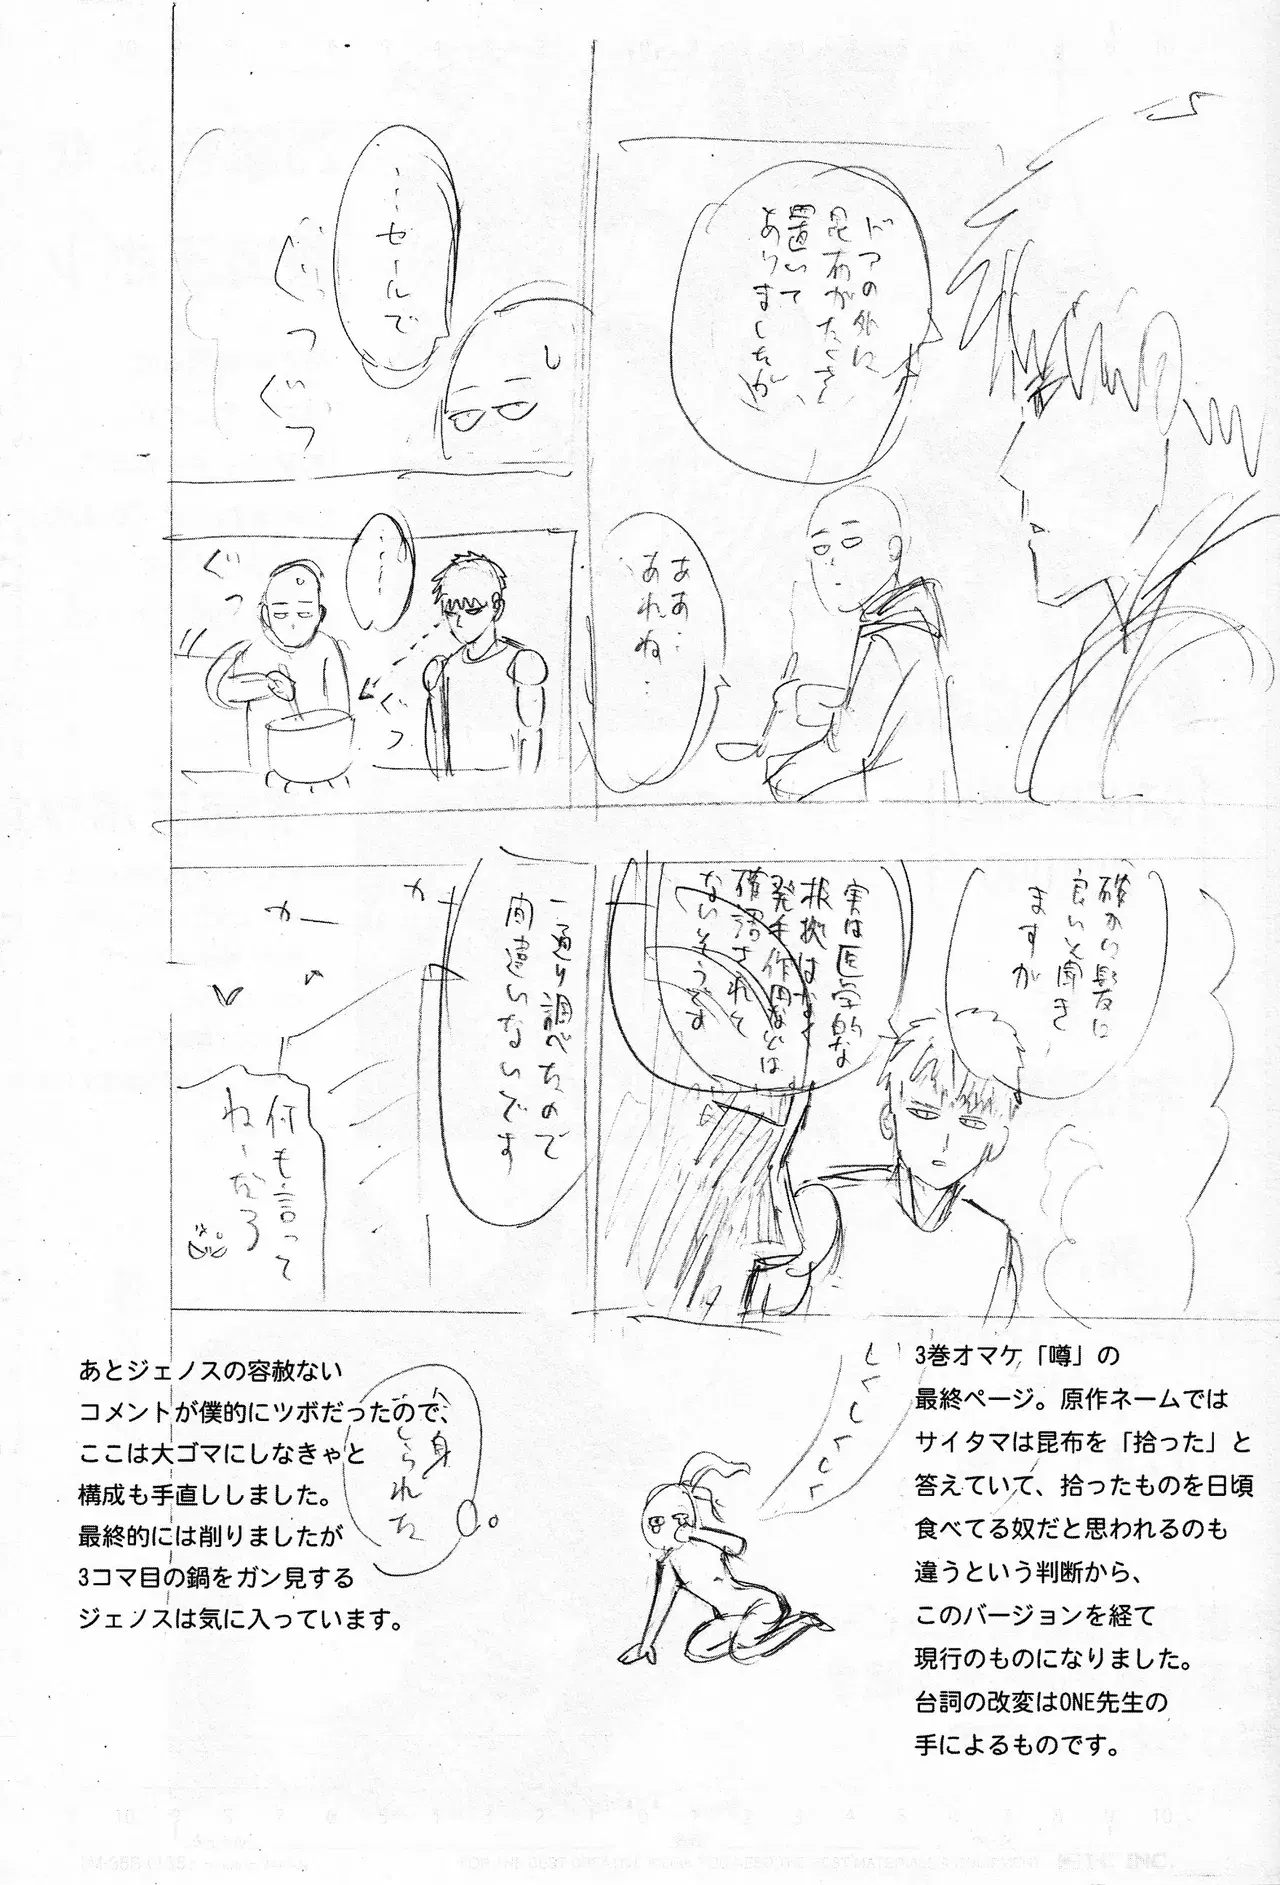 ドアの外に
昆布がたくさん
置いて
ありましたが
ああ…
あれね…
……セールで
ぐつ
ぐつ
ぐつ
……
ぐつ
確かに髪に
良いと聞き
ますが
実は医学的な
根拠はなく
発毛作用などは
確認されて
ないそうです
一通り調べたので
間違いないです
カー
カー
何も言って
ねーだろ
3巻オマケ「噂」の
最終ページ。原作ネームでは
サイタマは昆布を「拾った」と
答えていて、拾ったものを日頃
食べてる奴だと思われるのも
違うという判断から、
このバージョンを経て
現行のものになりました。
台詞の改変はONE先生の
手によるものです。
しくしくしく
あとジェノスの容赦ない
コメントが僕的にツボだったので、
ここは大ゴマにしなきゃと
構成も手直ししました。
最終的には削りましたが
3コマ目の鍋をガン見する
ジェノスは気に入っています。